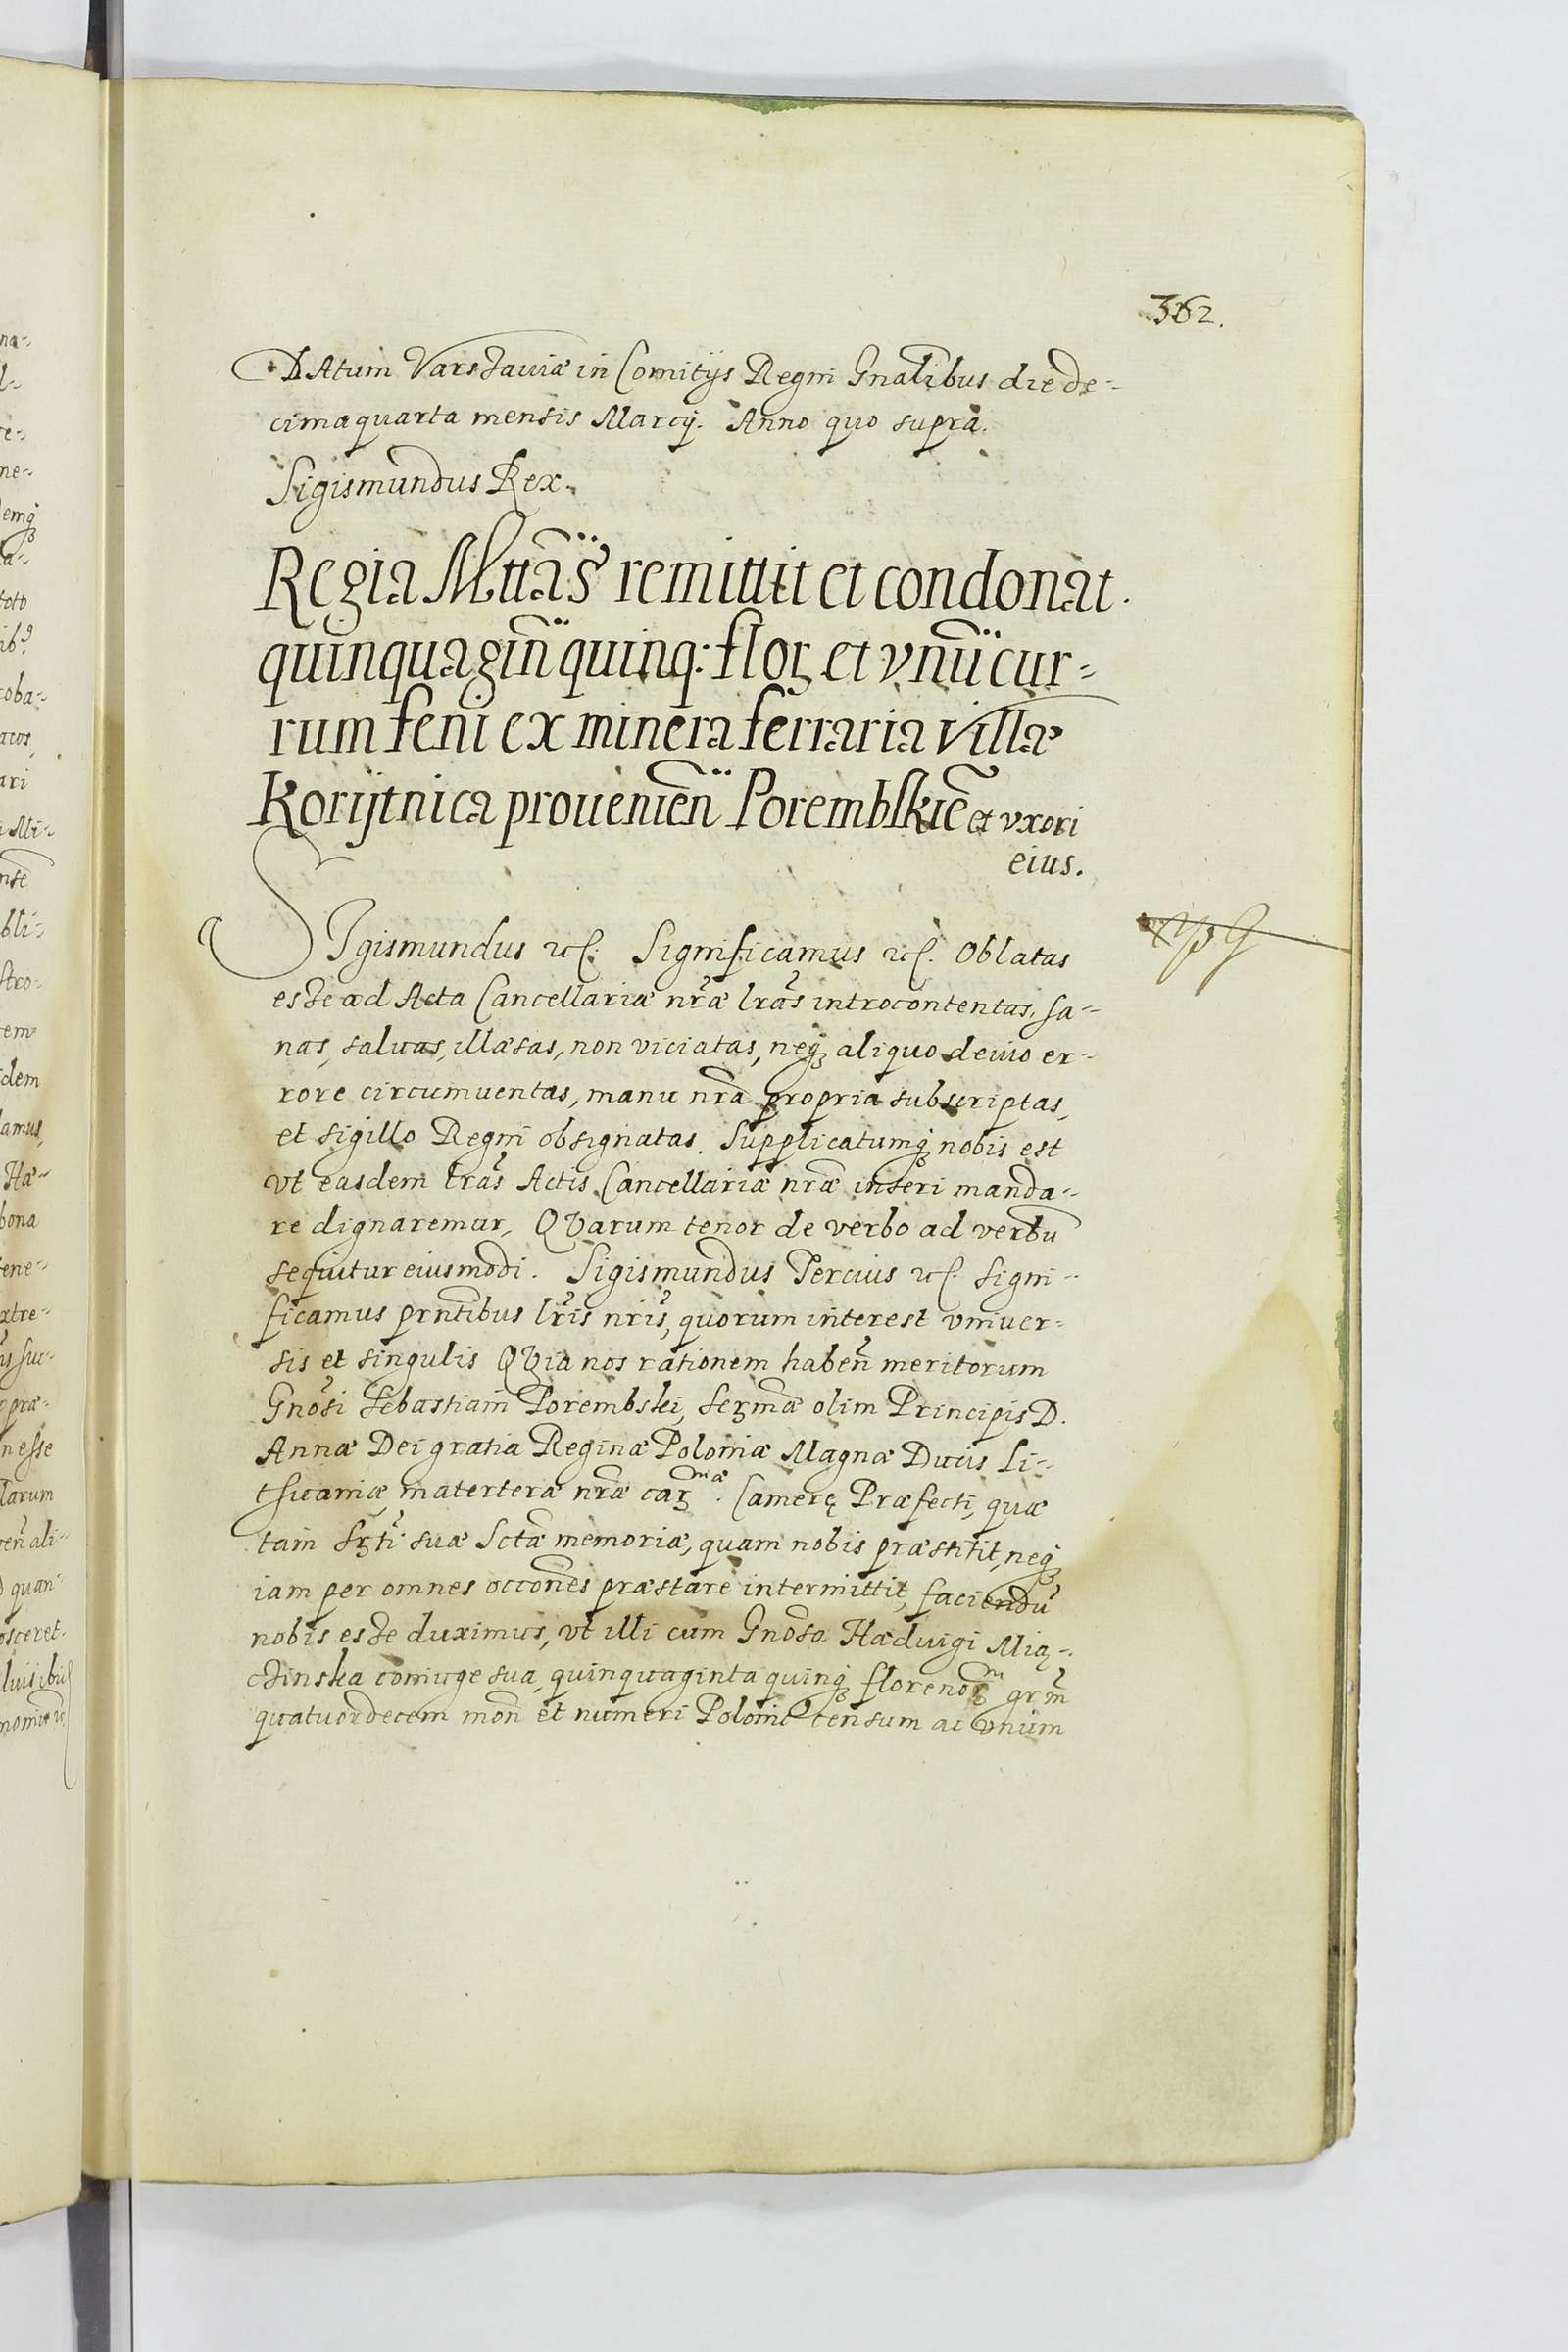 362.
DAtum Varschauiæ in Comitijs Regni Gnalibus die de-
cima quarta mensis Marcij. Anno quo supra.
Sigismundus Rex.
Regia Mttas remittit et condonat
quinquagin quinq: flor et vnu cur-
rum feni ex minera ferraria villæ
Korijtnica prouenien Porembskie et vxori
eius.
SIgismundus etc. Significamus etc. Oblatas
esse ad Acta Cancellariæ nræ lras introcontentas, sa-
nas, saluas, illæsas, non viciatas, neq aliquo deuio er-
rore circumuentas, manu nra propria subscriptas,
et sigillo Regni obsignatas. Supplicatumq nobis est
vt easdem lras Actis Cancellariæ nræ inseri manda-
re dignaremur, QVarum tenor de verbo ad verbu
sequitur eiusmodi. Sigismundus Tercius etc. signi-
ficamus prntibus lris nris, quorum interest vniver-
sis et singulis QVia nos rationem haben meritorum
Gnosi Sebastiani Porembski, Sermæ olim Principis D.
Annæ Dei gratia Reginæ Poloniæ Magnæ Ducis Li-
thuaniæ, materteræ nræ car mæ. Camerę Præfecti, quæ
tam Srti suæ Sctæ memoriæ, quam nobis præstitit, neq
iam per omnes occones præstare intermittit, faciendu
nobis esse duximus, vt illi cum Gnosa Hæduigi Mią-
czinska coniuge sua, quinquaginta quinq florenor m grm
quatuordecem mon et numeri Polonic censum ac vnum
na-
l-
re-
ne-
emq
a-
toto
ib9
coba-
acos,
ari
Mi-
nse
bli-
stro-
em
dem
amus,
Hæ-
bona
ene-
xtre-
suc-
præ-
nesse
larum
en ali-
quan
osceret.
luisibus